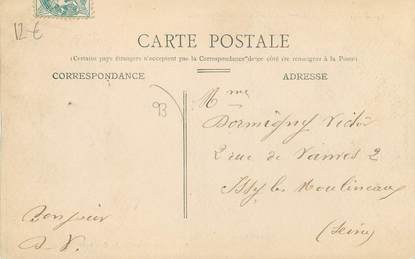 12 €
CARTE POSTALE
(Certains pays étrangers n'acceptent pas la Correspondance de ce côté (se renseigner à la Poste)
CORRESPONDANCE
ADRESSE
93
Mme
Dormigny Victor
2 rue de Vanves 2
Issy les Moulineaux
(Seine)
Bonjour